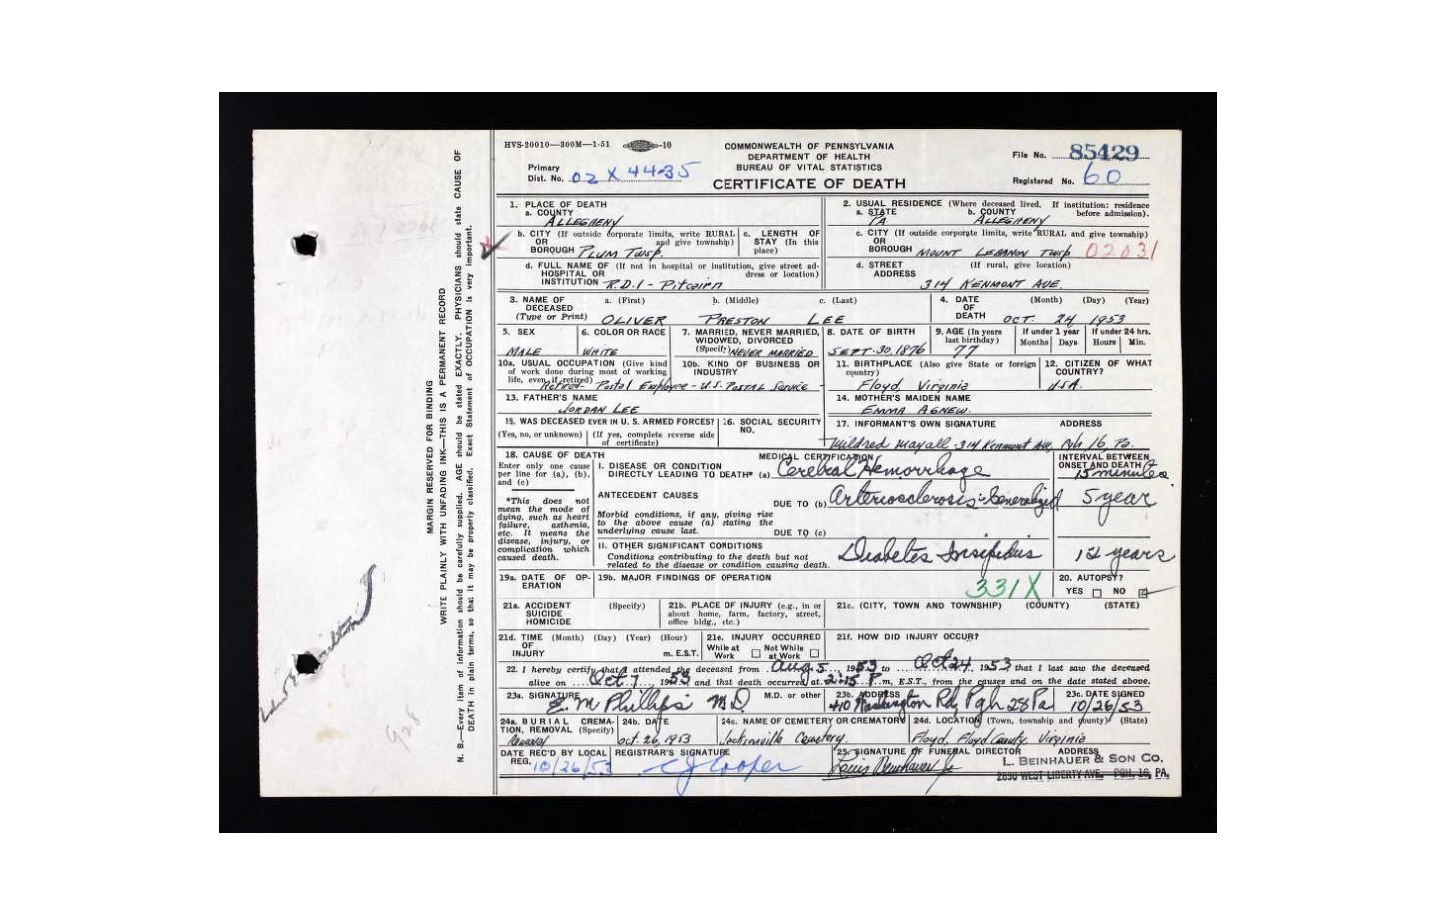 HVS-20010—300M—1-51 -10
COMMONWEALTH OF PENNSYLVANIA
DEPARTMENT OF HEALTH
BUREAU OF VITAL STATISTICS
CERTIFICATE OF DEATH
Primary
Dist. No. 02 X 44-35
File No. 85429
Registered No. 60
1. PLACE OF DEATH
a. COUNTY ALLEGHENY
2. USUAL RESIDENCE (Where deceased lived. If institution: residence before admission).
a. STATE PA b. COUNTY ALLEGHENY
b. CITY (If outside corporate limits, write RURAL and give township)
OR
BOROUGH PLUM TWSP.
c. LENGTH OF STAY (In this place)
c. CITY (If outside corporate limits, write RURAL and give township)
OR
BOROUGH MOUNT LEBANON TWSP 02031
d. FULL NAME OF (If not in hospital or institution, give street address or location)
HOSPITAL OR
INSTITUTION R.D.1 - Pitcairn
d. STREET (If rural, give location)
ADDRESS 314 KENMONT AVE.
3. NAME OF DECEASED (Type or Print)
a. (First) b. (Middle) c. (Last)
OLIVER PRESTON LEE
4. DATE OF DEATH (Month) (Day) (Year)
OCT. 24 1953
5. SEX
MALE
6. COLOR OR RACE
WHITE
7. MARRIED, NEVER MARRIED, WIDOWED, DIVORCED (Specify) NEVER MARRIED
8. DATE OF BIRTH
SEPT. 30, 1876
9. AGE (In years last birthday)
77
If under 1 year
Months Days
If under 24 hrs.
Hours Min.
10a. USUAL OCCUPATION (Give kind of work done during most of working life, even if retired)
10b. KIND OF BUSINESS OR INDUSTRY
Retired- Postal Employee - U.S. POSTAL Service
11. BIRTHPLACE (Also give State or foreign country)
Floyd, Virginia
12. CITIZEN OF WHAT COUNTRY?
USA.
13. FATHER'S NAME
JORDAN LEE
14. MOTHER'S MAIDEN NAME
EMMA AGNEW.
15. WAS DECEASED EVER IN U. S. ARMED FORCES?
(Yes, no, or unknown) (If yes, complete reverse side of certificate)
16. SOCIAL SECURITY NO.
17. INFORMANT'S OWN SIGNATURE ADDRESS
Mildred Mayall - 314 Kenmont Ave, Pgh 16 Pa.
18. CAUSE OF DEATH
Enter only one cause per line for (a), (b), and (c)
MEDICAL CERTIFICATION
INTERVAL BETWEEN ONSET AND DEATH
I. DISEASE OR CONDITION
DIRECTLY LEADING TO DEATH* (a) Cerebral Hemorrhage
15 minutes
*This does not mean the mode of dying, such as heart failure, asthenia, etc. It means the disease, injury, or complication which caused death.
ANTECEDENT CAUSES
DUE TO (b) Arteriosclerosis - Generalized 5 year
Morbid conditions, if any, giving rise to the above cause (a) stating the underlying cause last.
DUE TO (c)
II. OTHER SIGNIFICANT CONDITIONS
Conditions contributing to the death but not related to the disease or condition causing death.
Diabetes Insipidus 12 years
19a. DATE OF OPERATION
19b. MAJOR FINDINGS OF OPERATION
331X
20. AUTOPSY?
YES NO
21a. ACCIDENT SUICIDE HOMICIDE (Specify)
21b. PLACE OF INJURY (e.g., in or about home, farm, factory, street, office bldg., etc.)
21c. (CITY, TOWN AND TOWNSHIP) (COUNTY) (STATE)
21d. TIME OF INJURY (Month) (Day) (Year) (Hour)
m. E.S.T.
21e. INJURY OCCURRED
While at Work Not While at Work
21f. HOW DID INJURY OCCUR?
22. I hereby certify that I attended the deceased from Aug 5, 1953 to Oct 24, 1953 that I last saw the deceased
alive on Oct. 7, 1953 and that death occurred at 2:15 P.m, E.S.T., from the causes and on the date stated above.
23a. SIGNATURE M.D. or other
E. M. Phillips M.D.
23b. ADDRESS
410 Washington Rd, Pgh 28 Pa
23c. DATE SIGNED
10/26/53
24a. BURIAL CREMATION, REMOVAL (Specify)
Removal
24b. DATE
Oct. 26, 1953
24c. NAME OF CEMETERY OR CREMATORY
Jacksonville Cemetery.
24d. LOCATION (Town, township and county) (State)
Floyd, Floyd County, Virginia
DATE REC'D BY LOCAL REG. 10/26/53
REGISTRAR'S SIGNATURE
C J Cooper
25. SIGNATURE OF FUNERAL DIRECTOR ADDRESS
Louis Beinhauer Jr
L. BEINHAUER & SON CO.
2630 WEST LIBERTY AVE. PGH. 16, PA.
MARGIN RESERVED FOR BINDING
WRITE PLAINLY WITH UNFADING INK—THIS IS A PERMANENT RECORD
N. B.—Every item of information should be carefully supplied. AGE should be stated EXACTLY. PHYSICIANS should state CAUSE OF
DEATH in plain terms, so that it may be properly classified. Exact Statement of OCCUPATION is very important.